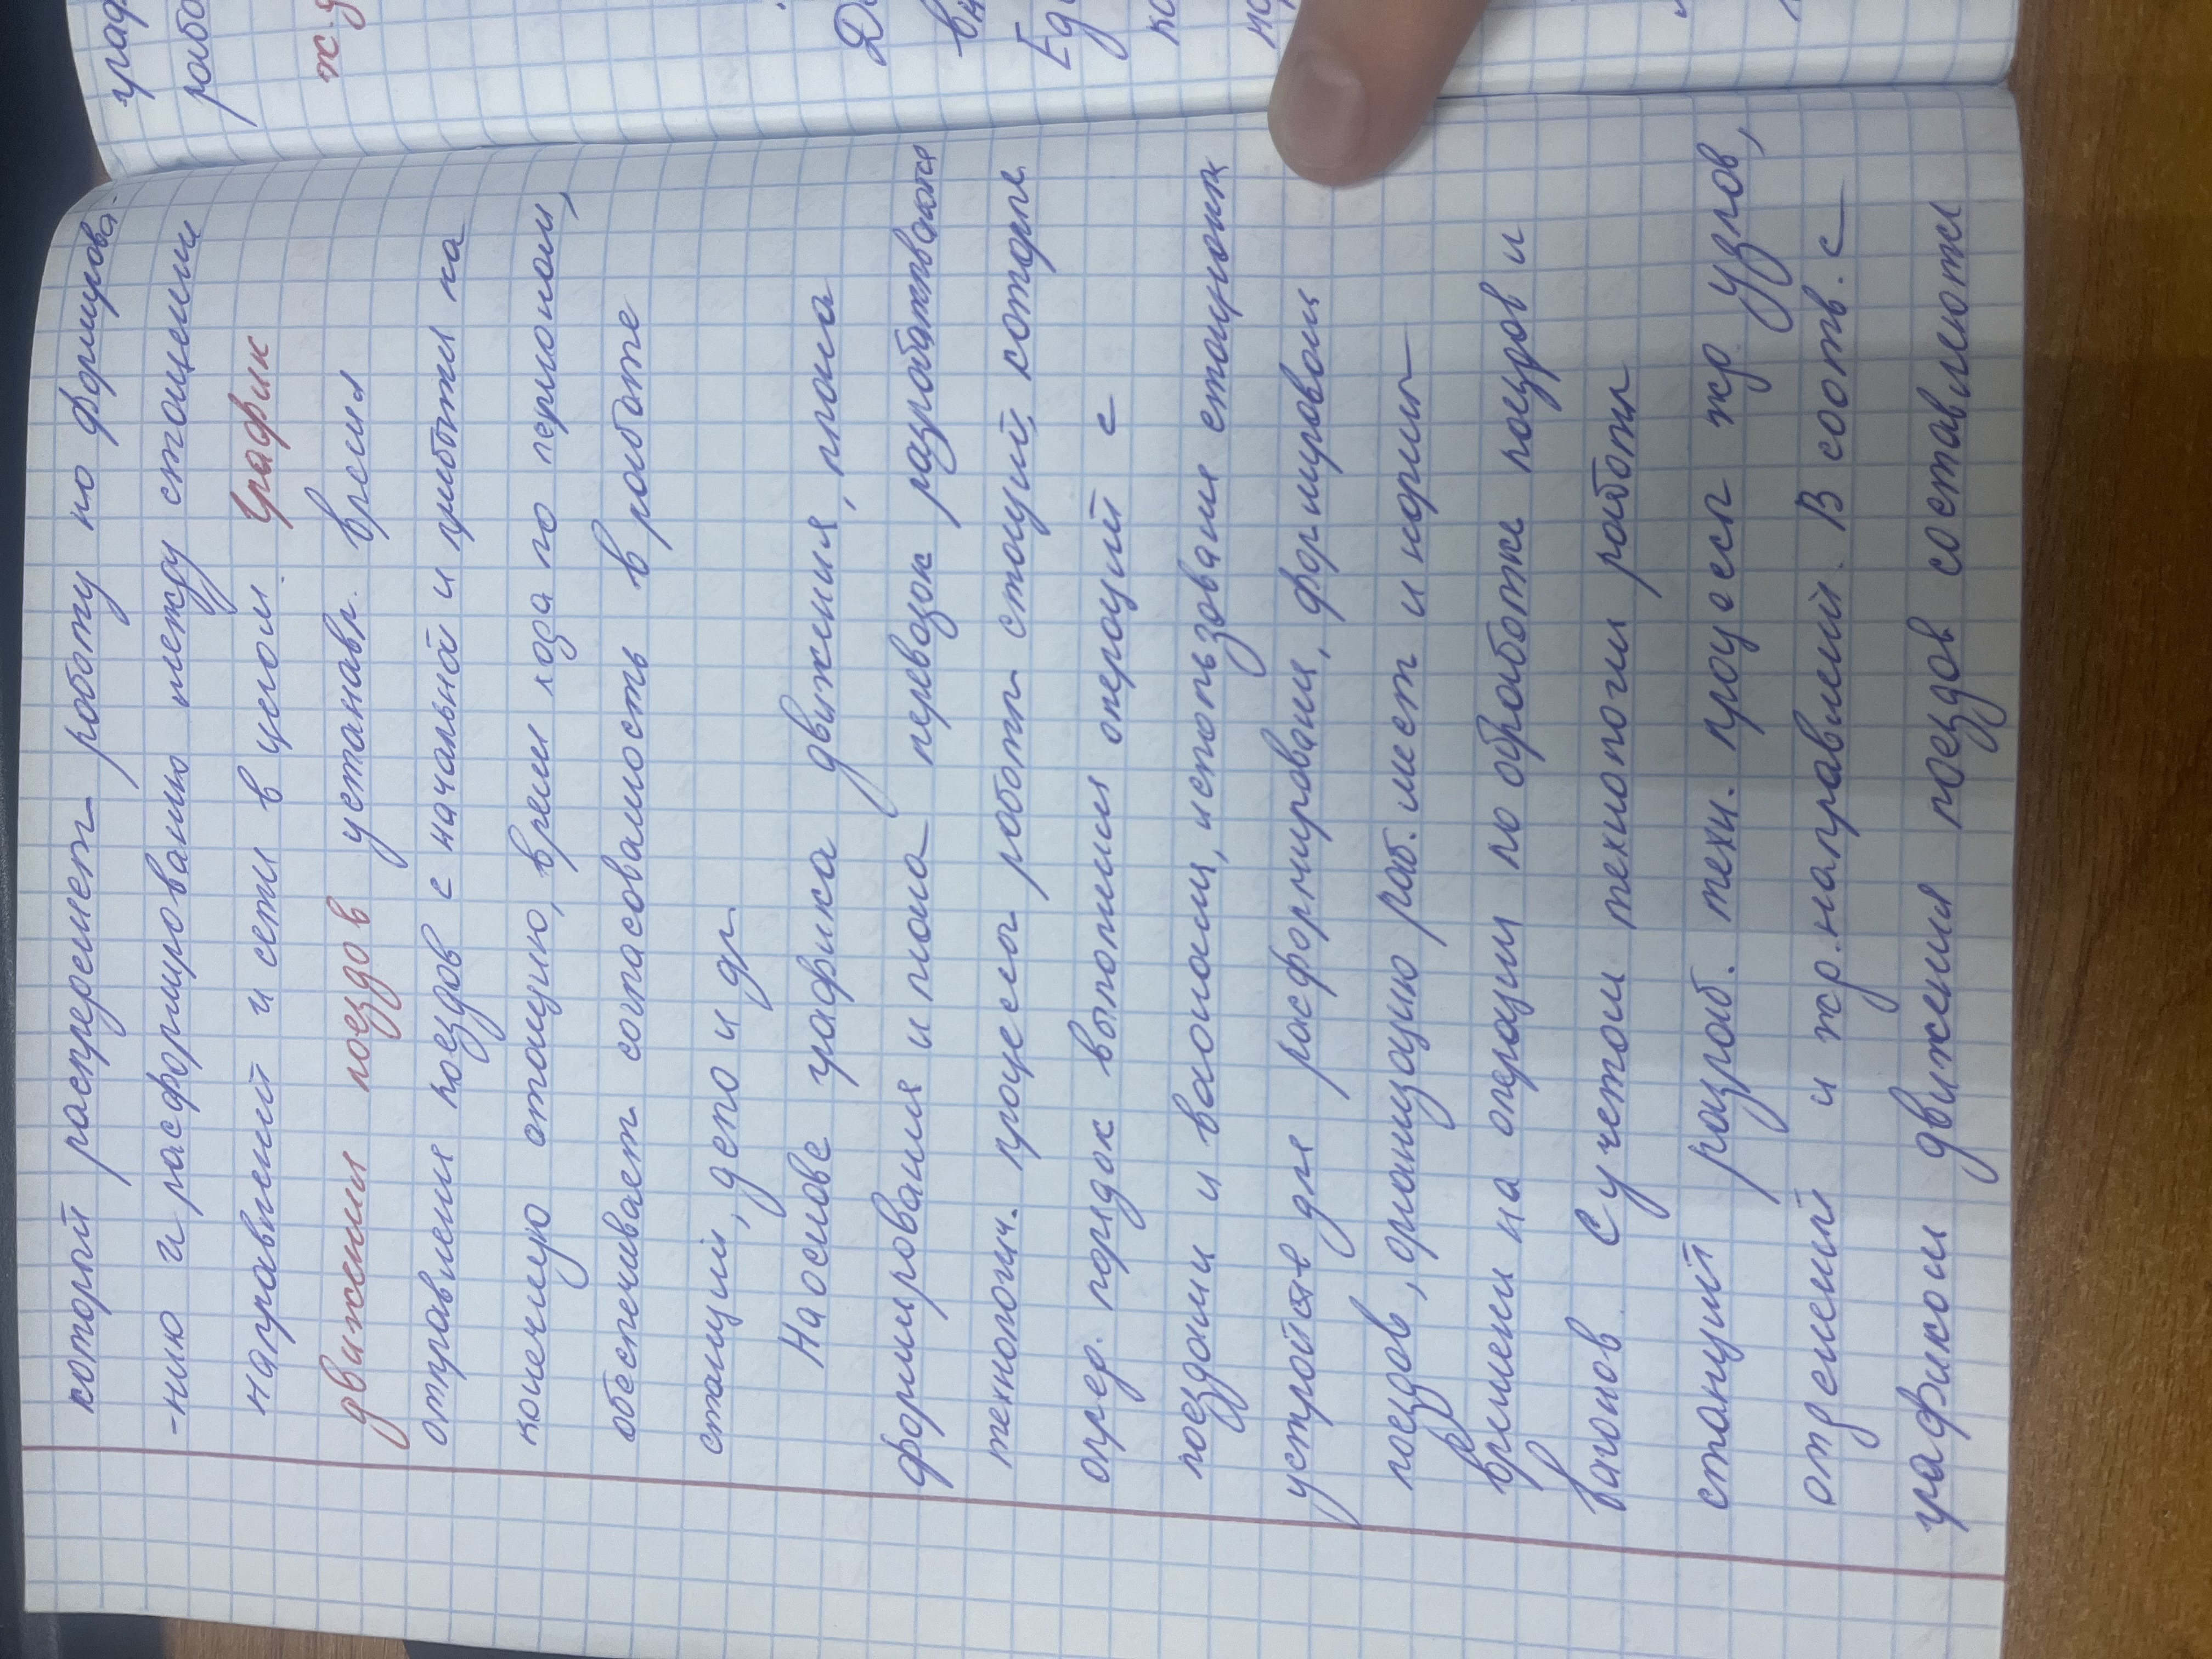 который распределяет работу по формирова-
-нию и расформированию между станциями
направлений и сети в целом. График
движения поездов устанавл. время
отправления поездов с начальной и прибытия на
конечную станцию, время хода по перегонам,
обеспечивает согласованность в работе
станций, депо и др
На основе графика движения, плана
формирования и плана перевозок разрабатывается
технологич. процесса работы станций, которые
опред. порядок выполнения операций с
поездами и вагонами, использование станционных
устройств для расформирования, формирования
поездов, организацию раб. мест и нормы
времени на операции по обработке поездов и
вагонов. С учетом технологии работы
станций разраб. техн. процессы жд. узлов,
отделений и жд. направлений. В соотв. с
графиком движения поездов составляются
граф
рабо
ж.д